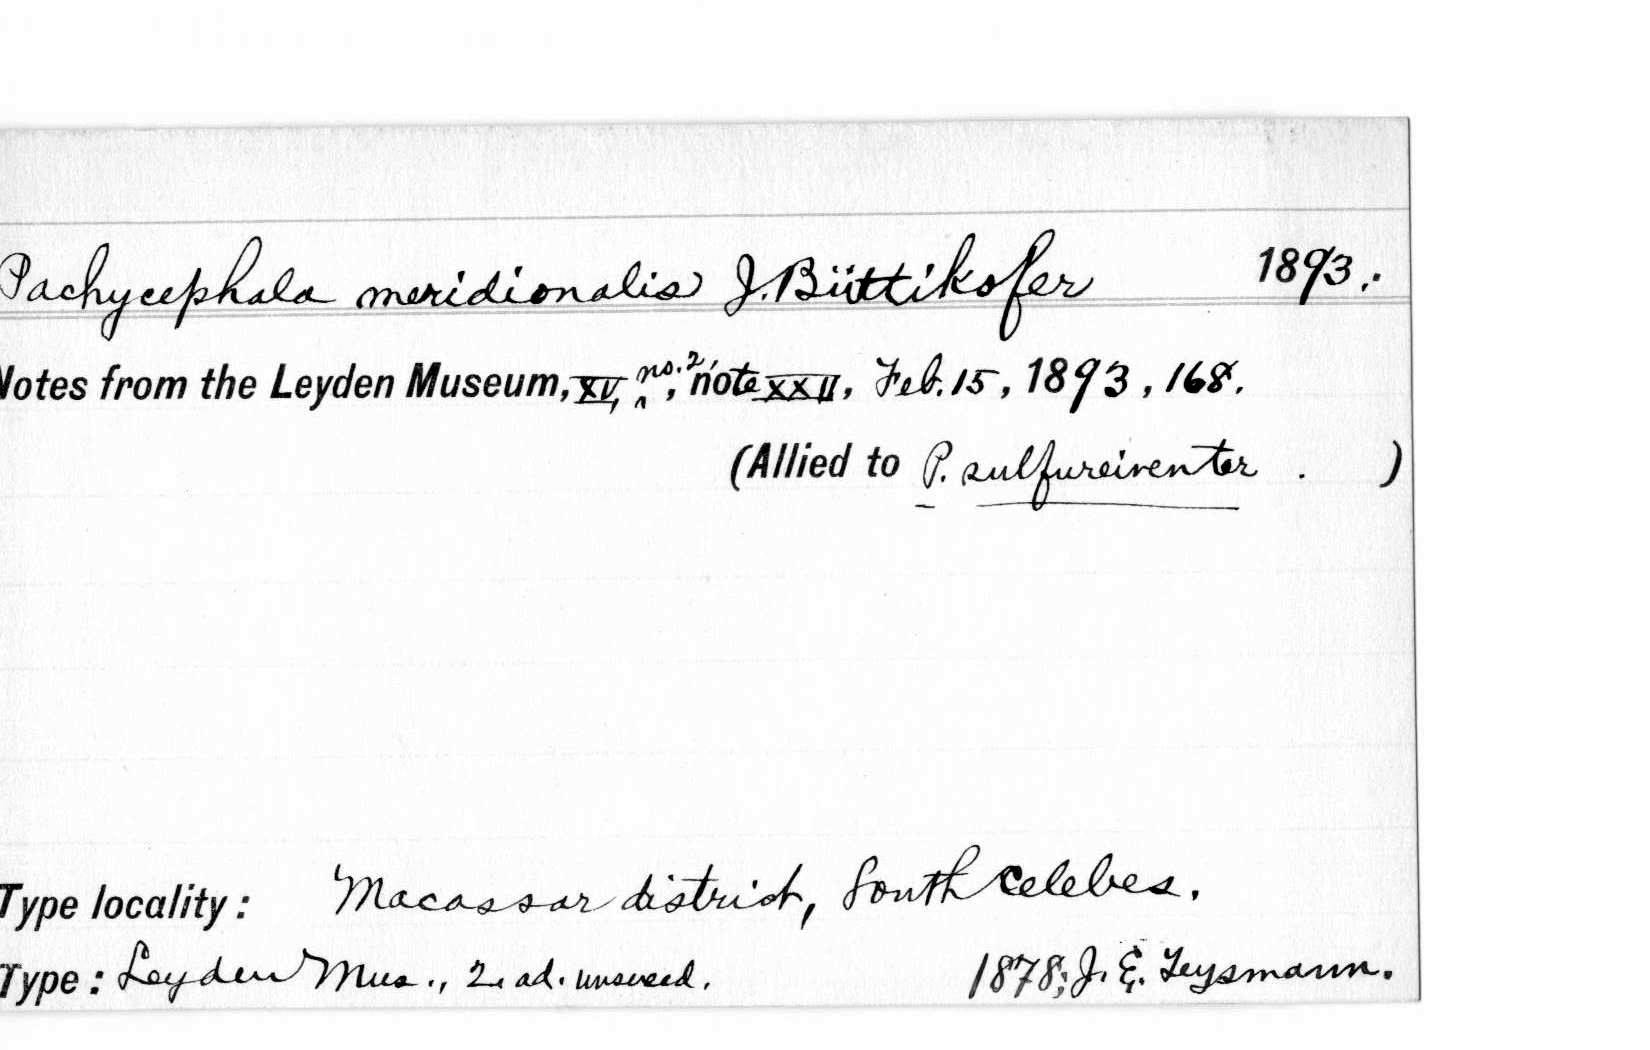 Pachycephala meridionalis J. Büttikofer 1893.
Notes from the Leyden Museum, XV, no. 2, note XXII, Feb. 15, 1893, 168.
(Allied to P. sulfureiventer . )
Type locality: Macassar district, South Celebes.
Type: Leyden Mus., 2. ad. unsexed. 1878; J. E. Teysmann.